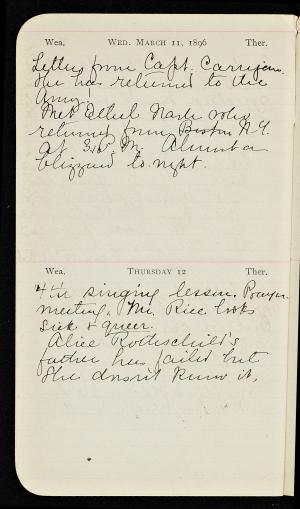 Wea. WED. MARCH 11, 1896 Ther.
Letter from Capt. Carrigan.
She has returned to the
Army!
Met Ethel Nash who
returned from Boston N.Y.
at 3.15 P.M. Almost a
blizzard to night.
Wea. THURSDAY 12 Ther.
4th singing lesson. Prayer
meeting. Mr. Rice looks
sick & queer.
Alice Rothschild's
father has failed but
she doesn't know it.